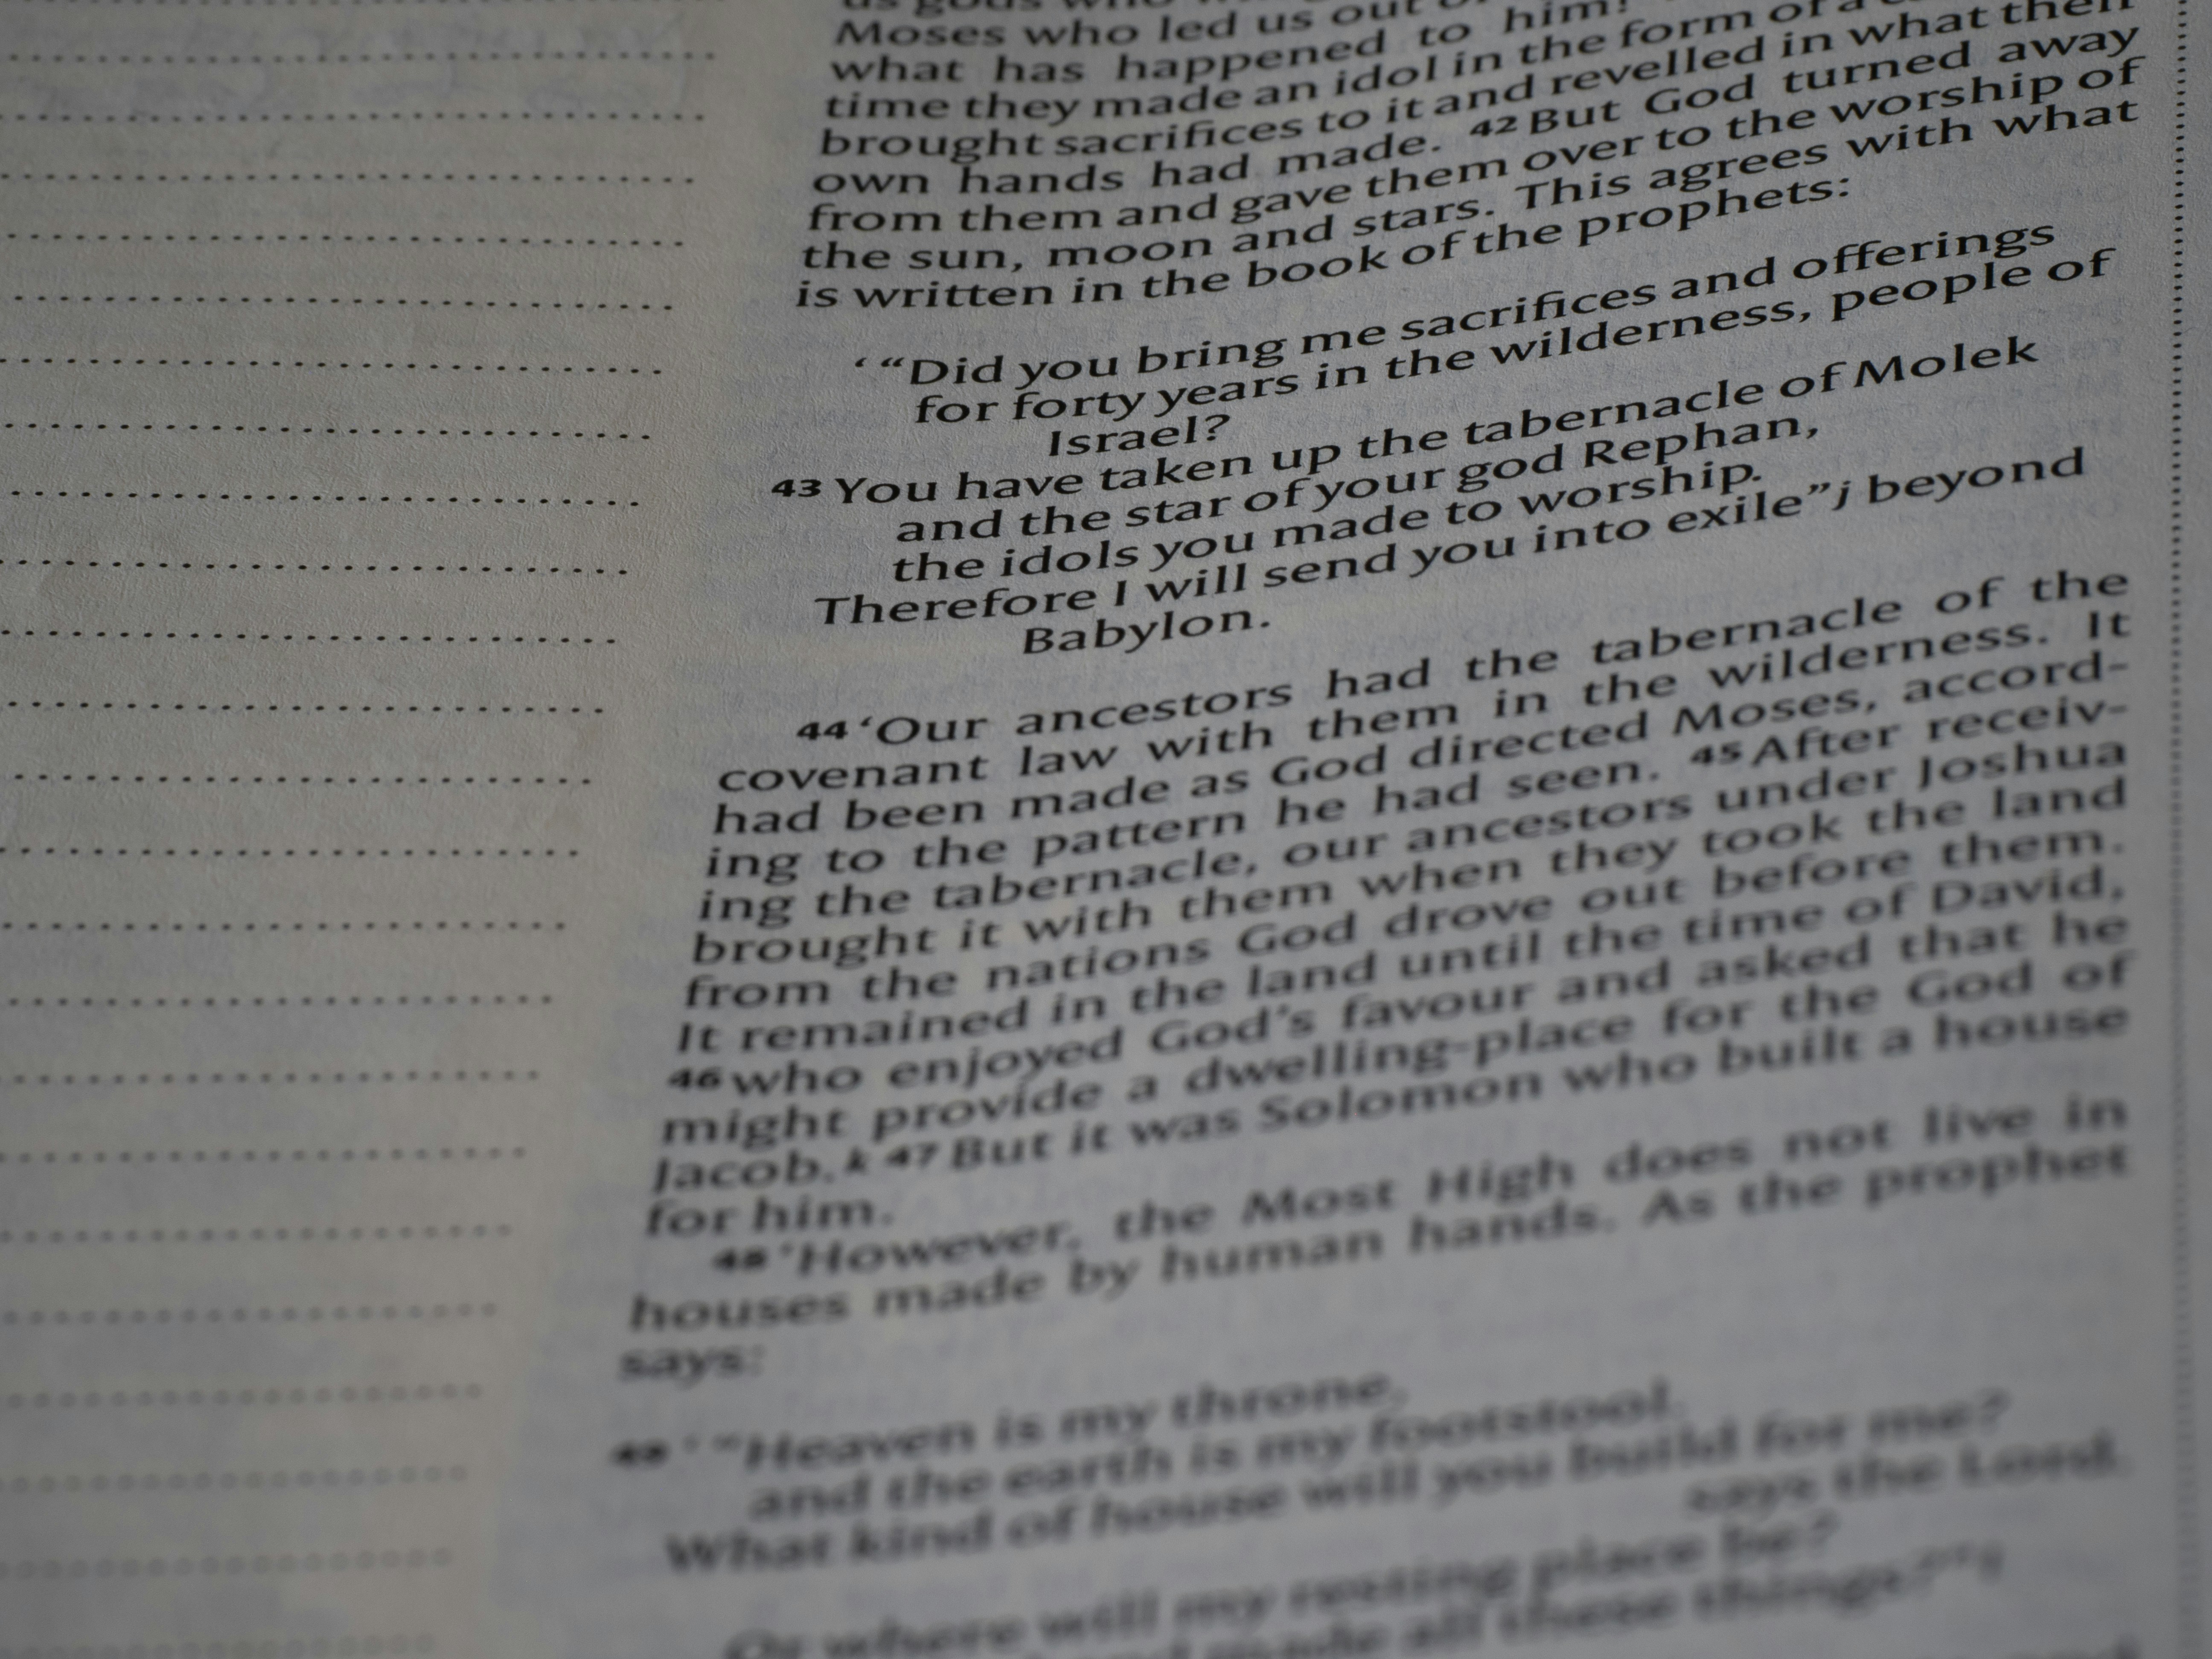 us gods who
Moses who led us out
what has happened to him!
time they made an idol in the form of a
brought sacrifices to it and revelled in what their
own hands had made. 42 But God turned away
from them and gave them over to the worship of
the sun, moon and stars. This agrees with what
is written in the book of the prophets:
‘ “Did you bring me sacrifices and offerings
for forty years in the wilderness, people of
Israel?
43 You have taken up the tabernacle of Molek
and the star of your god Rephan,
the idols you made to worship.
Therefore I will send you into exile” j beyond
Babylon.
44 ‘Our ancestors had the tabernacle of the
covenant law with them in the wilderness. It
had been made as God directed Moses, accord-
ing to the pattern he had seen. 45 After receiv-
ing the tabernacle, our ancestors under Joshua
brought it with them when they took the land
from the nations God drove out before them.
It remained in the land until the time of David,
46 who enjoyed God’s favour and asked that he
might provide a dwelling-place for the God of
Jacob. k 47 But it was Solomon who built a house
for him.
48 ‘However, the Most High does not live in
houses made by human hands. As the prophet
says:
49 ‘ “Heaven is my throne,
and the earth is my footstool.
What kind of house will you build for me?
says the Lord.
Or where will my resting place be?
made all these things?”